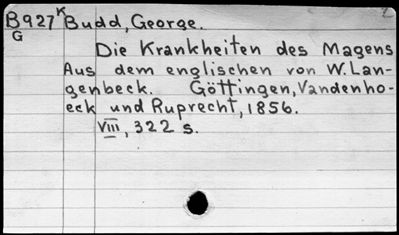 B927 K Budd, George.
G
Die Krankheiten des Magens
Aus dem englischen von W. Lan-
genbeck. Göttingen, Vandenho-
eck und Ruprecht, 1856.
VIII, 322 s.